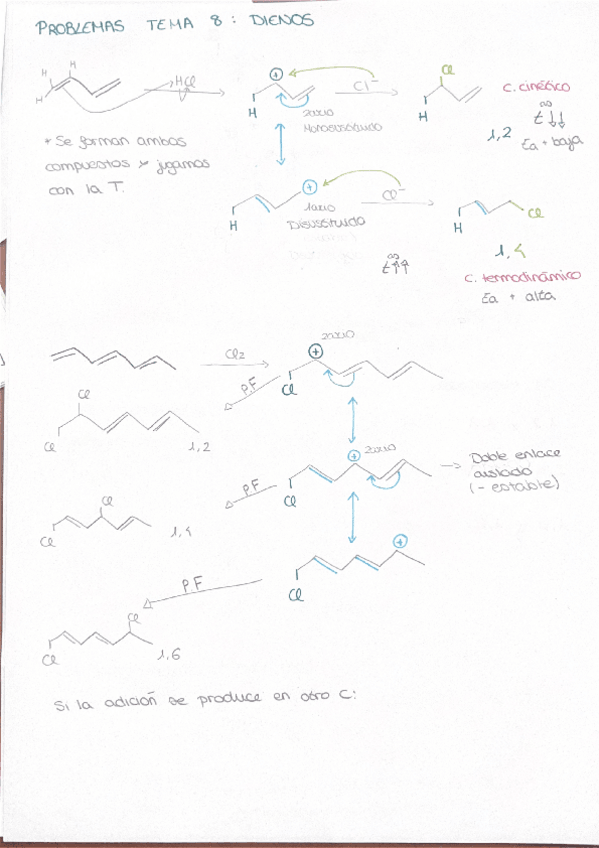 PROBLEMAS TEMA 8: DIENOS
H H
H
HCl
Cl⁻
Cl
C. cinético
H
2ario
Monosustituido
H
1,2
t↓↓
Ea + baja
* Se forman ambos
compuestos y jugamos
con la T.
H
1ario
Disustituido
Cl⁻
H
Cl
t↑↑
1,4
C. termodinámico
Ea + alta
Cl2
2ario
Cl
P.F
Cl
Cl
1,2
2ario
Doble enlace
aislado
(- estable)
P.F
Cl
Cl
Cl
1,4
P.F
Cl
Cl
Cl
1,6
Si la adición se produce en otro C: